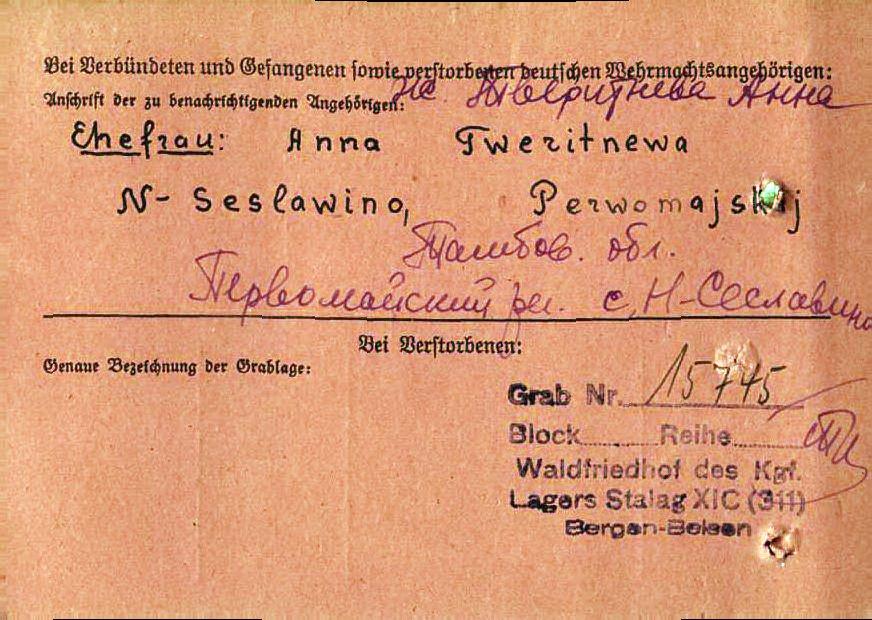 Bei Verbündeten und Gefangenen sowie verstorbenen deutschen Wehrmachtsangehörigen:
Anschrift der zu benachrichtigenden Angehörigen:
Тверитнева Анна
Ehefrau: Anna Tweritnewa
N- Seslawino, Perwomajskij
Тамбов. обл.
Первомайский с, Н-Сеславино
Bei Verstorbenen:
Genaue Bezeichnung der Grablage:
Grab Nr. 15745
Block Reihe
Waldfriedhof des Kgf.
Lagers Stalag XIC (311)
Bergen-Belsen